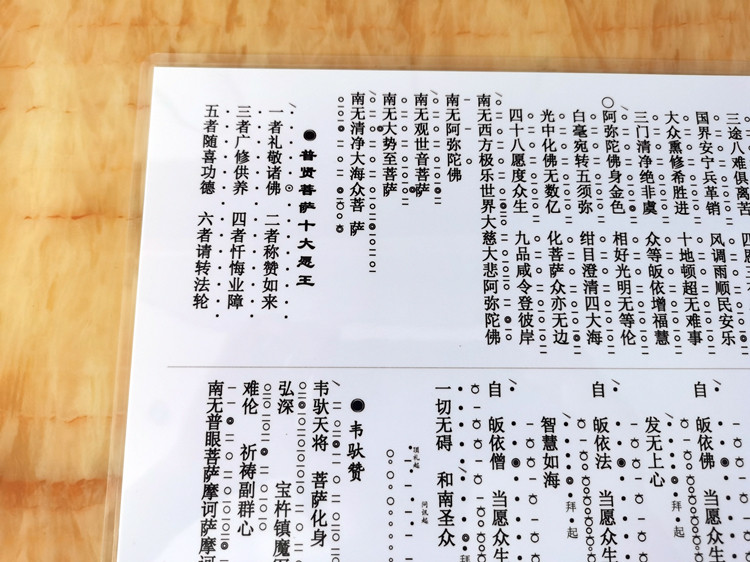 三途八难俱离苦
国界安宁兵革销 风调雨顺民安乐
大众熏修希胜进 十地顿超无难事
三门清净绝非虞 众等皈依增福慧
阿弥陀佛身金色 相好光明无等伦
白毫宛转五须弥 绀目澄清四大海
光中化佛无数亿 化菩萨众亦无边
四十八愿度众生 九品咸令登彼岸
南无西方极乐世界大慈大悲阿弥陀佛
南无阿弥陀佛
南无观世音菩萨
南无大势至菩萨
南无清净大海众菩 萨
普贤菩萨十大愿王
一者礼敬诸佛 二者称赞如来
三者广修供养 四者忏悔业障
五者随喜功德 六者请转法轮
自 皈依佛 当愿众生
发无上心
拜 起
自 皈依法 当愿众生
智慧如海
拜 起
自 皈依僧 当愿众生
一切无碍 和南圣众
拜
顶礼起
问讯起
韦驮赞
韦驮天将 菩萨化身
弘深 宝杵镇魔
难伦 祈祷副群心
南无普眼菩萨摩诃萨摩诃